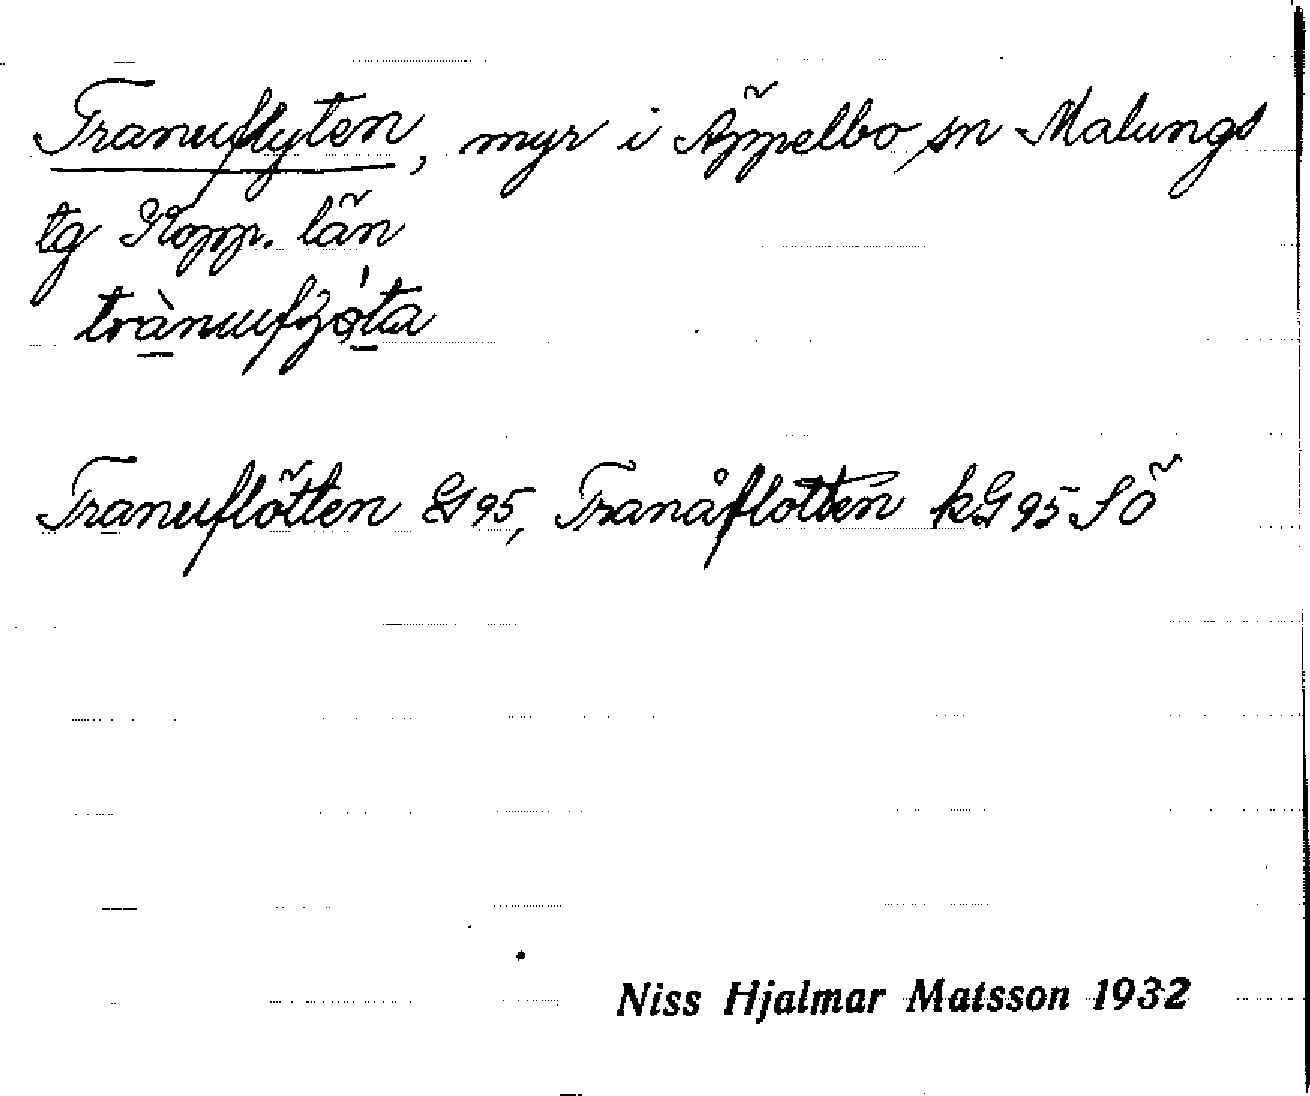 Tranuflyten, myr i Äppelbo sn Malungs
tg Kopp. län
trànuufȷǿta
Tranuflötten G 95, Tranåflotten kG 95 SÖ
Niss Hjalmar Matsson 1932